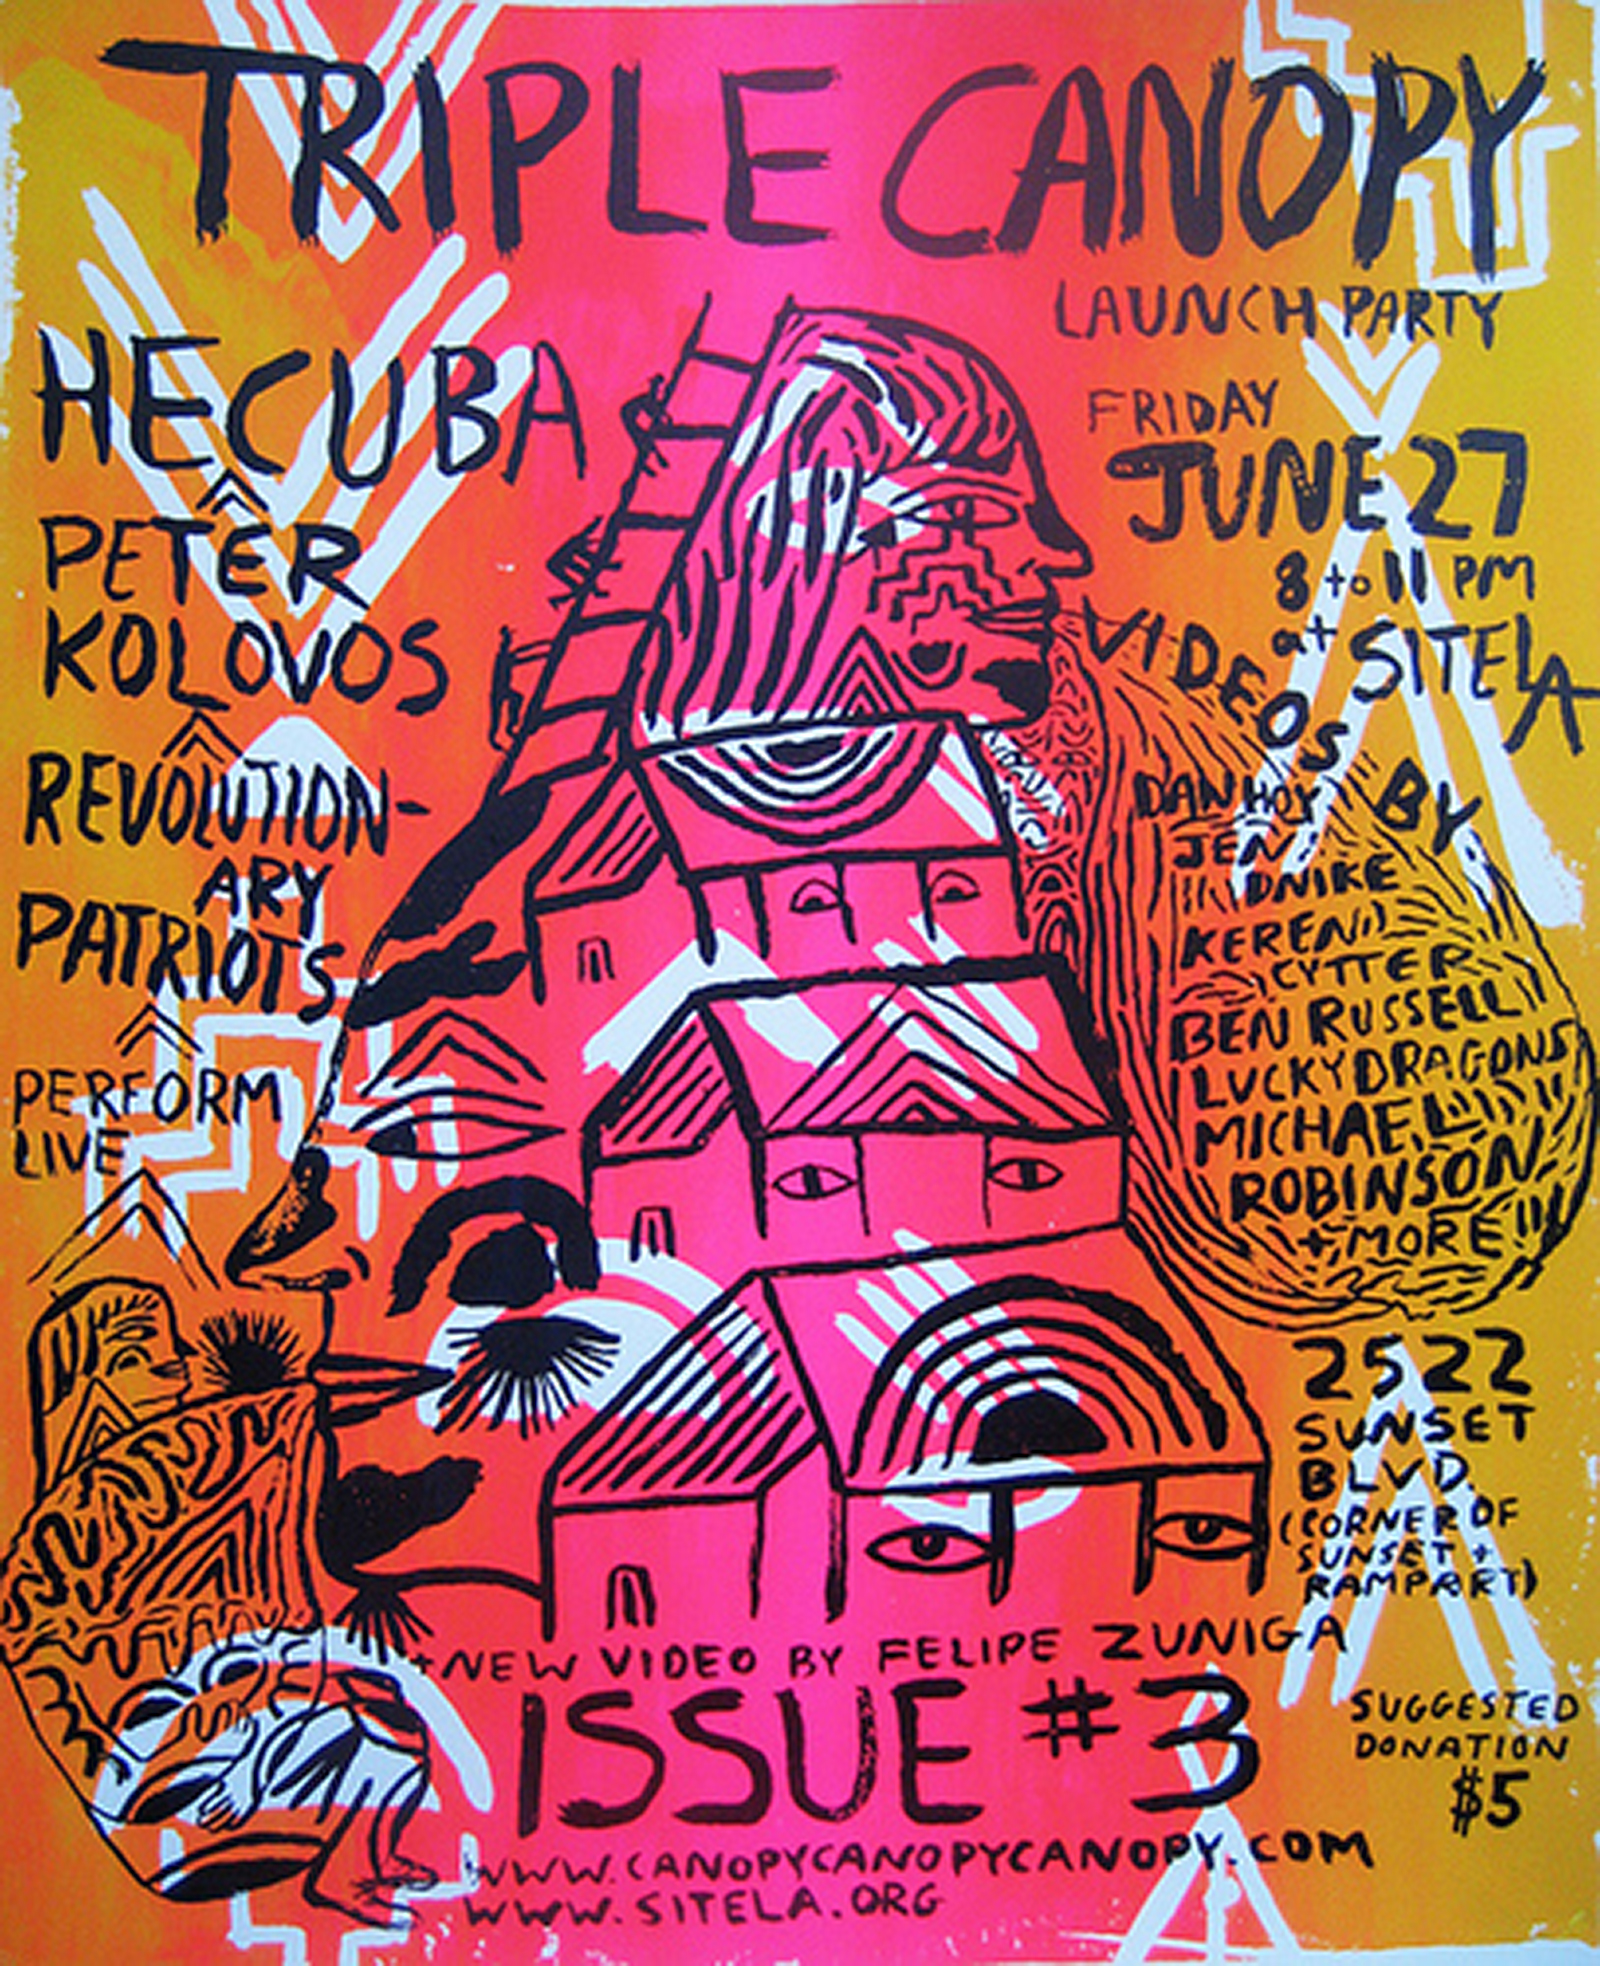 TRIPLE CANOPY
LAUNCH PARTY
HECUBA
PETER
KOLOVOS
REVOLUTION-
ARY
PATRIOTS
PERFORM
LIVE
FRIDAY
JUNE 27
8 to 11 PM
at SITELA
VIDEOS BY
DAN HOY
JEN
KEREN
CYTTER
BEN RUSSELL
LUCKY DRAGONS
MICHAEL
ROBINSON
+ MORE!!
2522
SUNSET
BLVD.
(CORNER OF
SUNSET +
RAMPART)
+NEW VIDEO BY FELIPE ZUNIGA
ISSUE #3
SUGGESTED
DONATION
$5
WWW.CANOPYCANOPYCANOPY.COM
WWW.SITELA.ORG